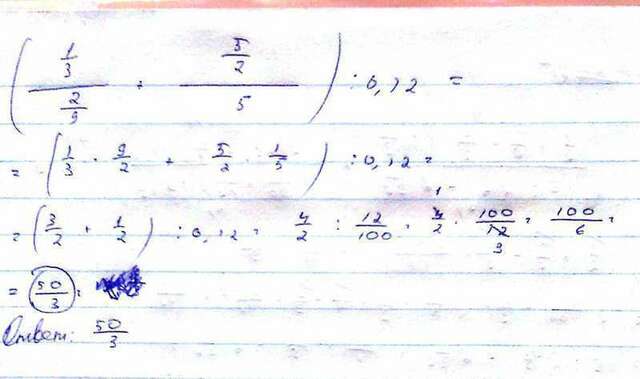 ( (1/3)/(2/9) + (5/2)/5 ) : 0,12 =
= ( 1/3 · 9/2 + 5/2 · 1/5 ) : 0,12 =
= ( 3/2 + 1/2 ) : 0,12 = 4/2 : 12/100 = 4/2 · 100/12 = 100/6 =
= 50/3
Ответ: 50/3